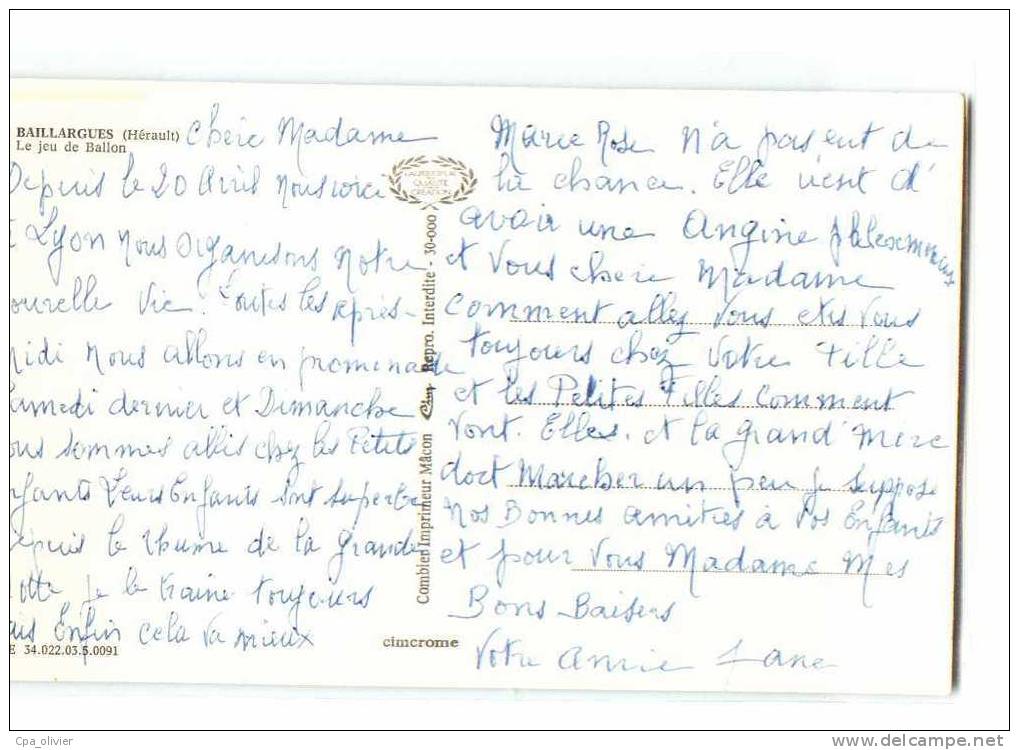 BAILLARGUES (Hérault)
Le jeu de Ballon
Chère Madame
Depuis le 20 Avril nous voici
Lyon nous organisons notre
nouvelle vie. toutes les après-
midi nous allons en promenade
Samedi dernier et Dimanche
nous sommes allés chez les Petits
Enfants Leurs Enfants sont superbe
depuis le rhume de la Grande
je le traine toujours
mais Enfin cela va mieux
E 34.022.03.5.0091
Combier Imprimeur Mâcon Cim Repro. Interdite - 30-000
cimcrome
Marie Rose n'a pas eut de
la chance. Elle vient d'
avoir une Angine
et Vous chère Madame
Comment allez Vous etes Vous
toujours chez Votre Fille
et les Petites Filles Comment
vont. Elles. et la Grand' mère
doct Marcher un peu je suppose
Nos Bonnes amities à Vos Enfants
et pour Vous Madame Mes
Bons Baisers
Votre Amie Jane
Cpa_olivier
www.delcampe.net